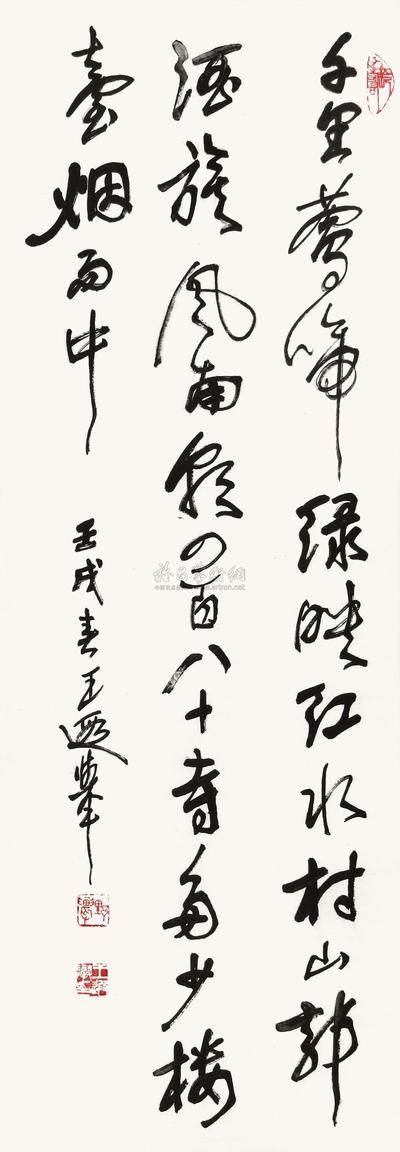 千里鶯啼绿映红水村山郭
酒旗风南朝四百八十寺多少楼
臺烟雨中
壬戌春王遐舉
雅昌藝術網